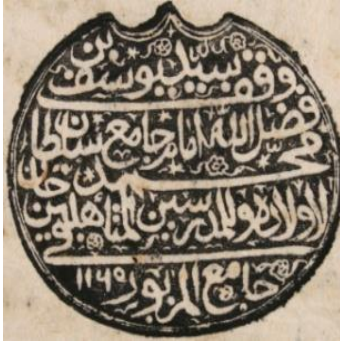 وقف سيد يوسف بن
فضل الله امام جامع سلطان
محمد خان
لاولاده وللمدرسين المتاهلين في
جامع المزبور ١١٦٩